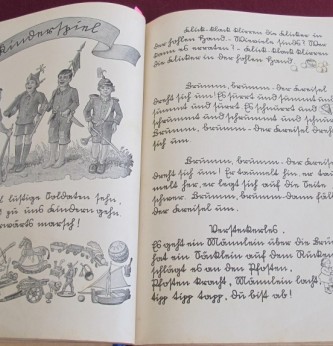 Kinderspiel
lustige Soldaten sehn,
zu uns Kindern gehn.
marsch!
Klick-klack klirren die Klicker in
der hohlen Hand. Wieviele sinds? Wer
kann es erraten? Klick-klack klirren
die Klicker in der hohlen Hand.
Brumm, brumm - der Kreisel
dreht sich um! Es surrt und summt und
summt und surrt. Es schnurrt und
brummt und schnurrt und
Brumm, brumm - der Kreisel dreht
sich um.
Brumm, brumm - der Kreisel
dreht sich um! Er baumelt hin, er tau-
melt her, er legt sich auf die Seite
schwer. Brumm, brumm - dann fällt
der Kreisel um.
Versteckerles.
Es geht ein Männlein über die Brück,
hat ein Säcklein auf dem Rücken,
schlägt es an den Pfosten,
Pfosten kracht, Männlein lacht,
tipp tipp tapp, du bist ab!